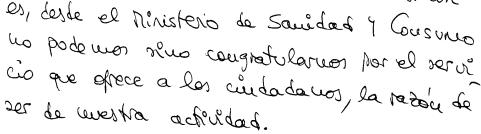 es, desde el Ministerio de Sanidad y Consumo
no podemos sino congratularnos por el servi
cio que ofrece a los ciudadanos, la razón de
ser de nuestra actividad.